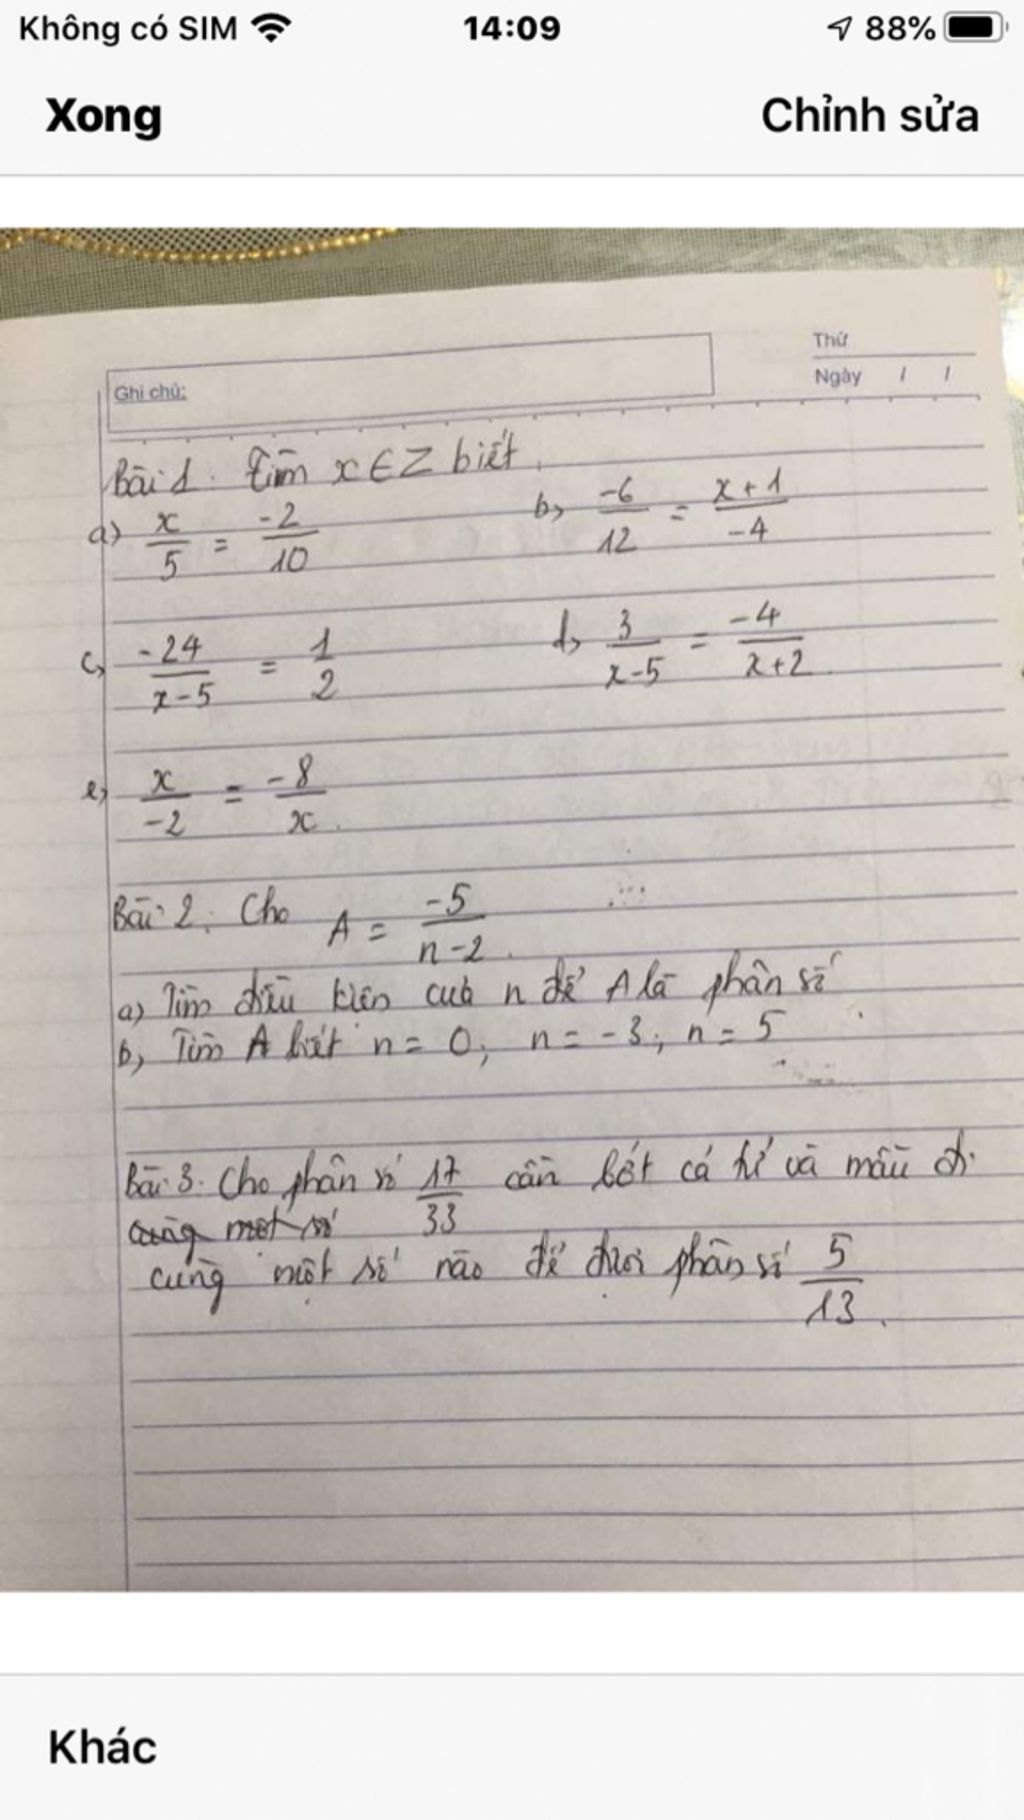 Không có SIM 14:09 88%
Xong Chỉnh sửa
Thứ
Ghi chú: Ngày / /
Bài 1. Tìm x ∈ Z biết
a) x/5 = -2/10 b) -6/12 = x+1/-4
c) -24/x-5 = 1/2 d) 3/x-5 = -4/x+2
e) x/-2 = -8/x
Bài 2. Cho A = -5/n-2
a) Tìm điều kiện của n để A là phân số
b) Tìm A biết n = 0; n = -3; n = 5
Bài 3. Cho phân số 17/33 cần bớt cả tử và mẫu đi
cùng một số
cùng một số nào để được phân số 5/13.
Khác